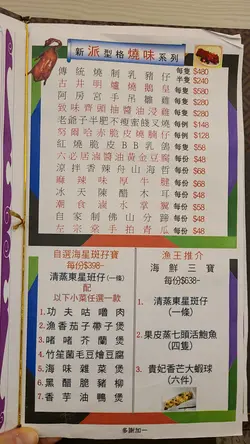 新派型格燒味系列
傳統燒制乳豬仔 每隻 $480
半隻 $240
古井明爐燒鵝皇 每隻 $580
阿房宮手吊雞 每隻 $280
致味齊頭抽醬油浸雞 每隻 $280
老爺子半肥不瘦蜜餞叉燒 每例 $148
努爾哈赤脆皮燒腩仔 每例 $128
紅燒脆皮BB乳鴿 每隻 $58
六必居滷醬油黃金豆腐 每份 $48
涼拌香辣舟山海哲 每份 $68
麻辣味厚牛腱 每份 $68
冰天陳醋木耳 每份 $48
潮食滷水掌翼 每份 $68
自家制佛山分蹄 每份 $48
左宗棠手拍青瓜 每份 $48
自選海星斑孖寶
每份$398-
清蒸東星斑仔(一條)
配
以下小菜任選一款
1. 功夫咕嚕肉
2. 漁香茄子帶子煲
3. 啫啫芥蘭煲
4. 竹笙菌毛豆燴豆腐
5. 海味雜菜煲
6. 黑醋脆豬柳
7. 香芋油鴨煲
漁王推介
海鮮三寶
每份$638-
1. 清蒸東星斑仔
(一條)
2. 果皮蒸七頭活鮑魚
(四隻)
3. 貴妃香芒大蝦球
(六件)
多謝加一